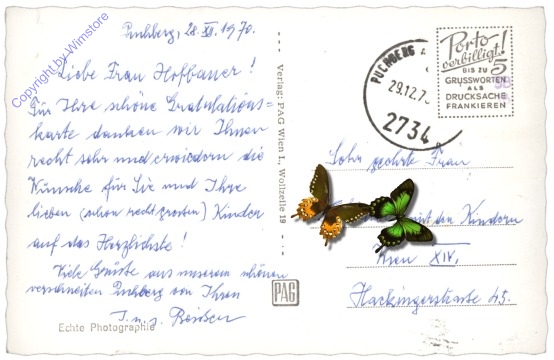 Puchberg, 28. XII. 1970.
Liebe Frau Hofbauer!
Für Ihre schöne Gratulations=
karte danken wir Ihnen
recht sehr und erwiedern die
Wünsche für Sie und Ihre
lieben (schon recht grossen) Kinder
auf das Herzlichste!
Viele Grüsse aus unserem schönen
verschneiten Puchberg von Ihren
Echte Photographie
Copyright by Wimstore
Verlag: PAG Wien I., Wollzeile 19
PAG
PUCHBERG
29.12.7
2734
Porto
verbilligt!
BIS ZU
5
GRUSSWORTEN
ALS
DRUCKSACHE
FRANKIEREN
Sehr geehrte Frau
mit den Kindern
Wien XIV,
Hackingerstrasse 45.